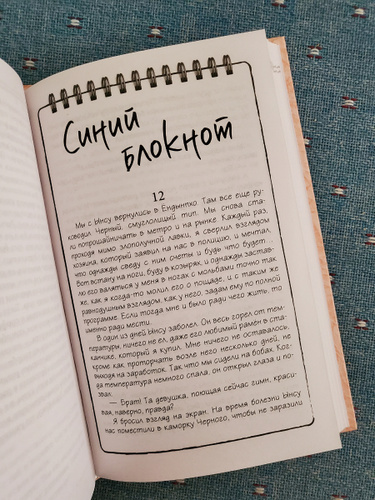 Синий
блокнот
12
Мы с Ынсу вернулись в Ёндынпхо. Там все еще ру-
ководил Черный, смуглолицый тип. Мы снова ста-
ли попрошайничать в метро и на рынке. Каждый раз,
проходя мимо злополучной лавки, я сверлил взглядом
хозяина, который заявил на нас в полицию, и мечтал,
что однажды сведу с ним счеты и будь что будет.
Вот встану на ноги, буду в козырях, и однажды застав-
лю его валяться у меня в ногах с мольбами точно так
же, как я когда-то молил его о пощаде, и с таким же
равнодушным взглядом, как у него, задам ему по полной
программе. Если тогда мне и было ради чего жить, то
именно ради мести.
В один из дней Ынсу заболел. Он весь горел от тем-
пературы, ничего не ел, даже его любимый рамен в ста-
канчике, который я купил. Мне ничего не оставалось,
кроме как проторчать возле него несколько дней, не
выходя на заработок. Так что мы сидели на бобах. Ког-
да температура немного спала, он открыл глаза и по-
звал:
— Брат! Та девушка, поющая сейчас гимн, краси-
вая, наверно, правда?
Я бросил взгляд на экран. На время болезни Ынсу
нас поместили в каморку Черного, чтобы не заразили